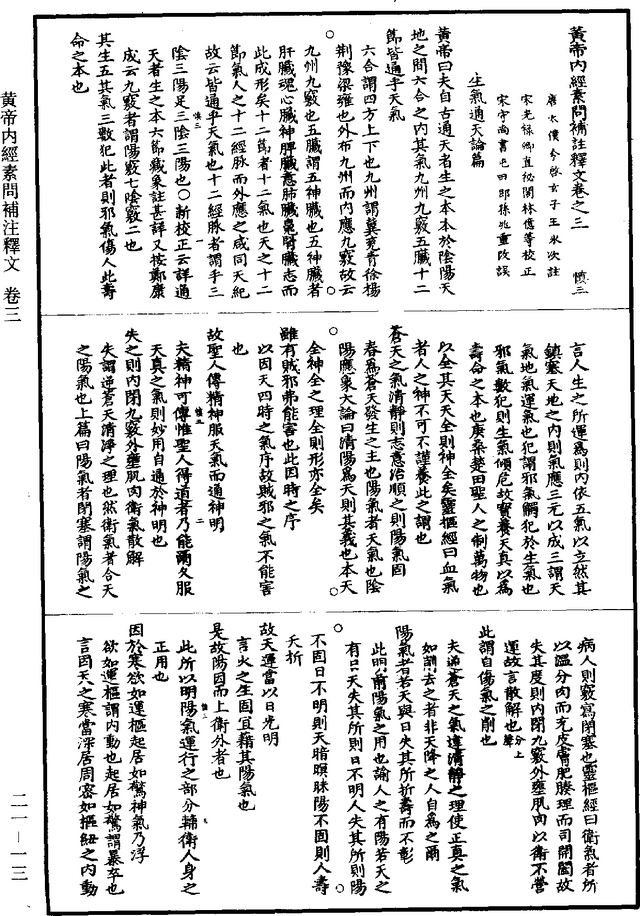 黃帝內經素問補註釋文卷之三　慎三
唐太僕令啓玄子王氷次註
宋光祿卿直祕閣林億等校正
宋守尚書屯田郎孫兆重改誤
生氣通天論篇
黃帝曰夫自古通天者生之本本於陰陽天
地之間六合之內其氣九州九竅五臟十二
節皆通乎天氣
六合謂四方上下也九州謂冀兗青徐揚
荊豫梁雍也外布九州而內應九竅故云
九州九竅也五臟謂五神臟也五神臟者
肝臟魂心臟神脾臟意肺臟魄腎臟志而
此成形矣十二節者十二氣也天之十二
節氣人之十二經脉而外應之咸同天紀
故云皆通乎天氣也十二經脉者謂手三
陰三陽足三陰三陽也○新校正云詳通
天者生之本六節藏象註甚詳又按鄭康
成云九竅者謂陽竅七陰竅二也
其生五其氣三數犯此者則邪氣傷人此壽
命之本也
言人生之所運爲則內依五氣以立然其
鎮塞天地之內則氣應三元以成三謂天
氣地氣運氣也犯謂邪氣觸犯於生氣也
邪氣數犯則生氣傾危故寶養天真以爲
壽命之本也庚桑楚曰聖人之制萬物也
以全其天天全則神全矣靈樞經曰血氣
者人之神不可不謹養此之謂也
蒼天之氣清靜則志意治順之則陽氣固
春爲蒼天發生之主也陽氣者天氣也陰
陽應象大論曰清陽爲天則其義也本天
全神全之理全則形亦全矣
雖有賊邪弗能害也此因時之序
以因天四時之氣序故賊邪之氣不能害
也
故聖人傳精神服天氣而通神明
夫精神可傳惟聖人得道者乃能爾久服
天真之氣則妙用自通於神明也
失之則內閉九竅外壅肌肉衛氣散解
失謂逆蒼天清淨之理也然衛氣者合天
之陽氣也上篇曰陽氣者閉塞謂陽氣之
病人則竅寫閉塞也靈樞經曰衛氣者所
以溫分肉而充皮膚肥腠理而司開闔故
失其度則內閉九竅外壅肌肉以衛不營
運故言散解也
此謂自傷氣之削也
夫逆蒼天之氣違清靜之理使正真之氣
如削去之者非天降之人自爲之爾
陽氣者若天與日失其所則折壽而不彰
此明前陽氣之用也諭人之有陽若天之
有日天失其所則日不明人失其所則陽
不固日不明則天暗暝昧陽不固則人壽
夭折
故天運當以日光明
言人之生固宜藉其陽氣也
是故陽因而上衛外者也
此所以明陽氣運行之部分輔衛人身之
正用也
因於寒欲如運樞起居如驚神氣乃浮
欲如運樞謂內動也起居如驚謂暴卒也
言因天之寒當深居周密如樞紐之內動
黃帝內經素問補注釋文　卷三
二一—一三